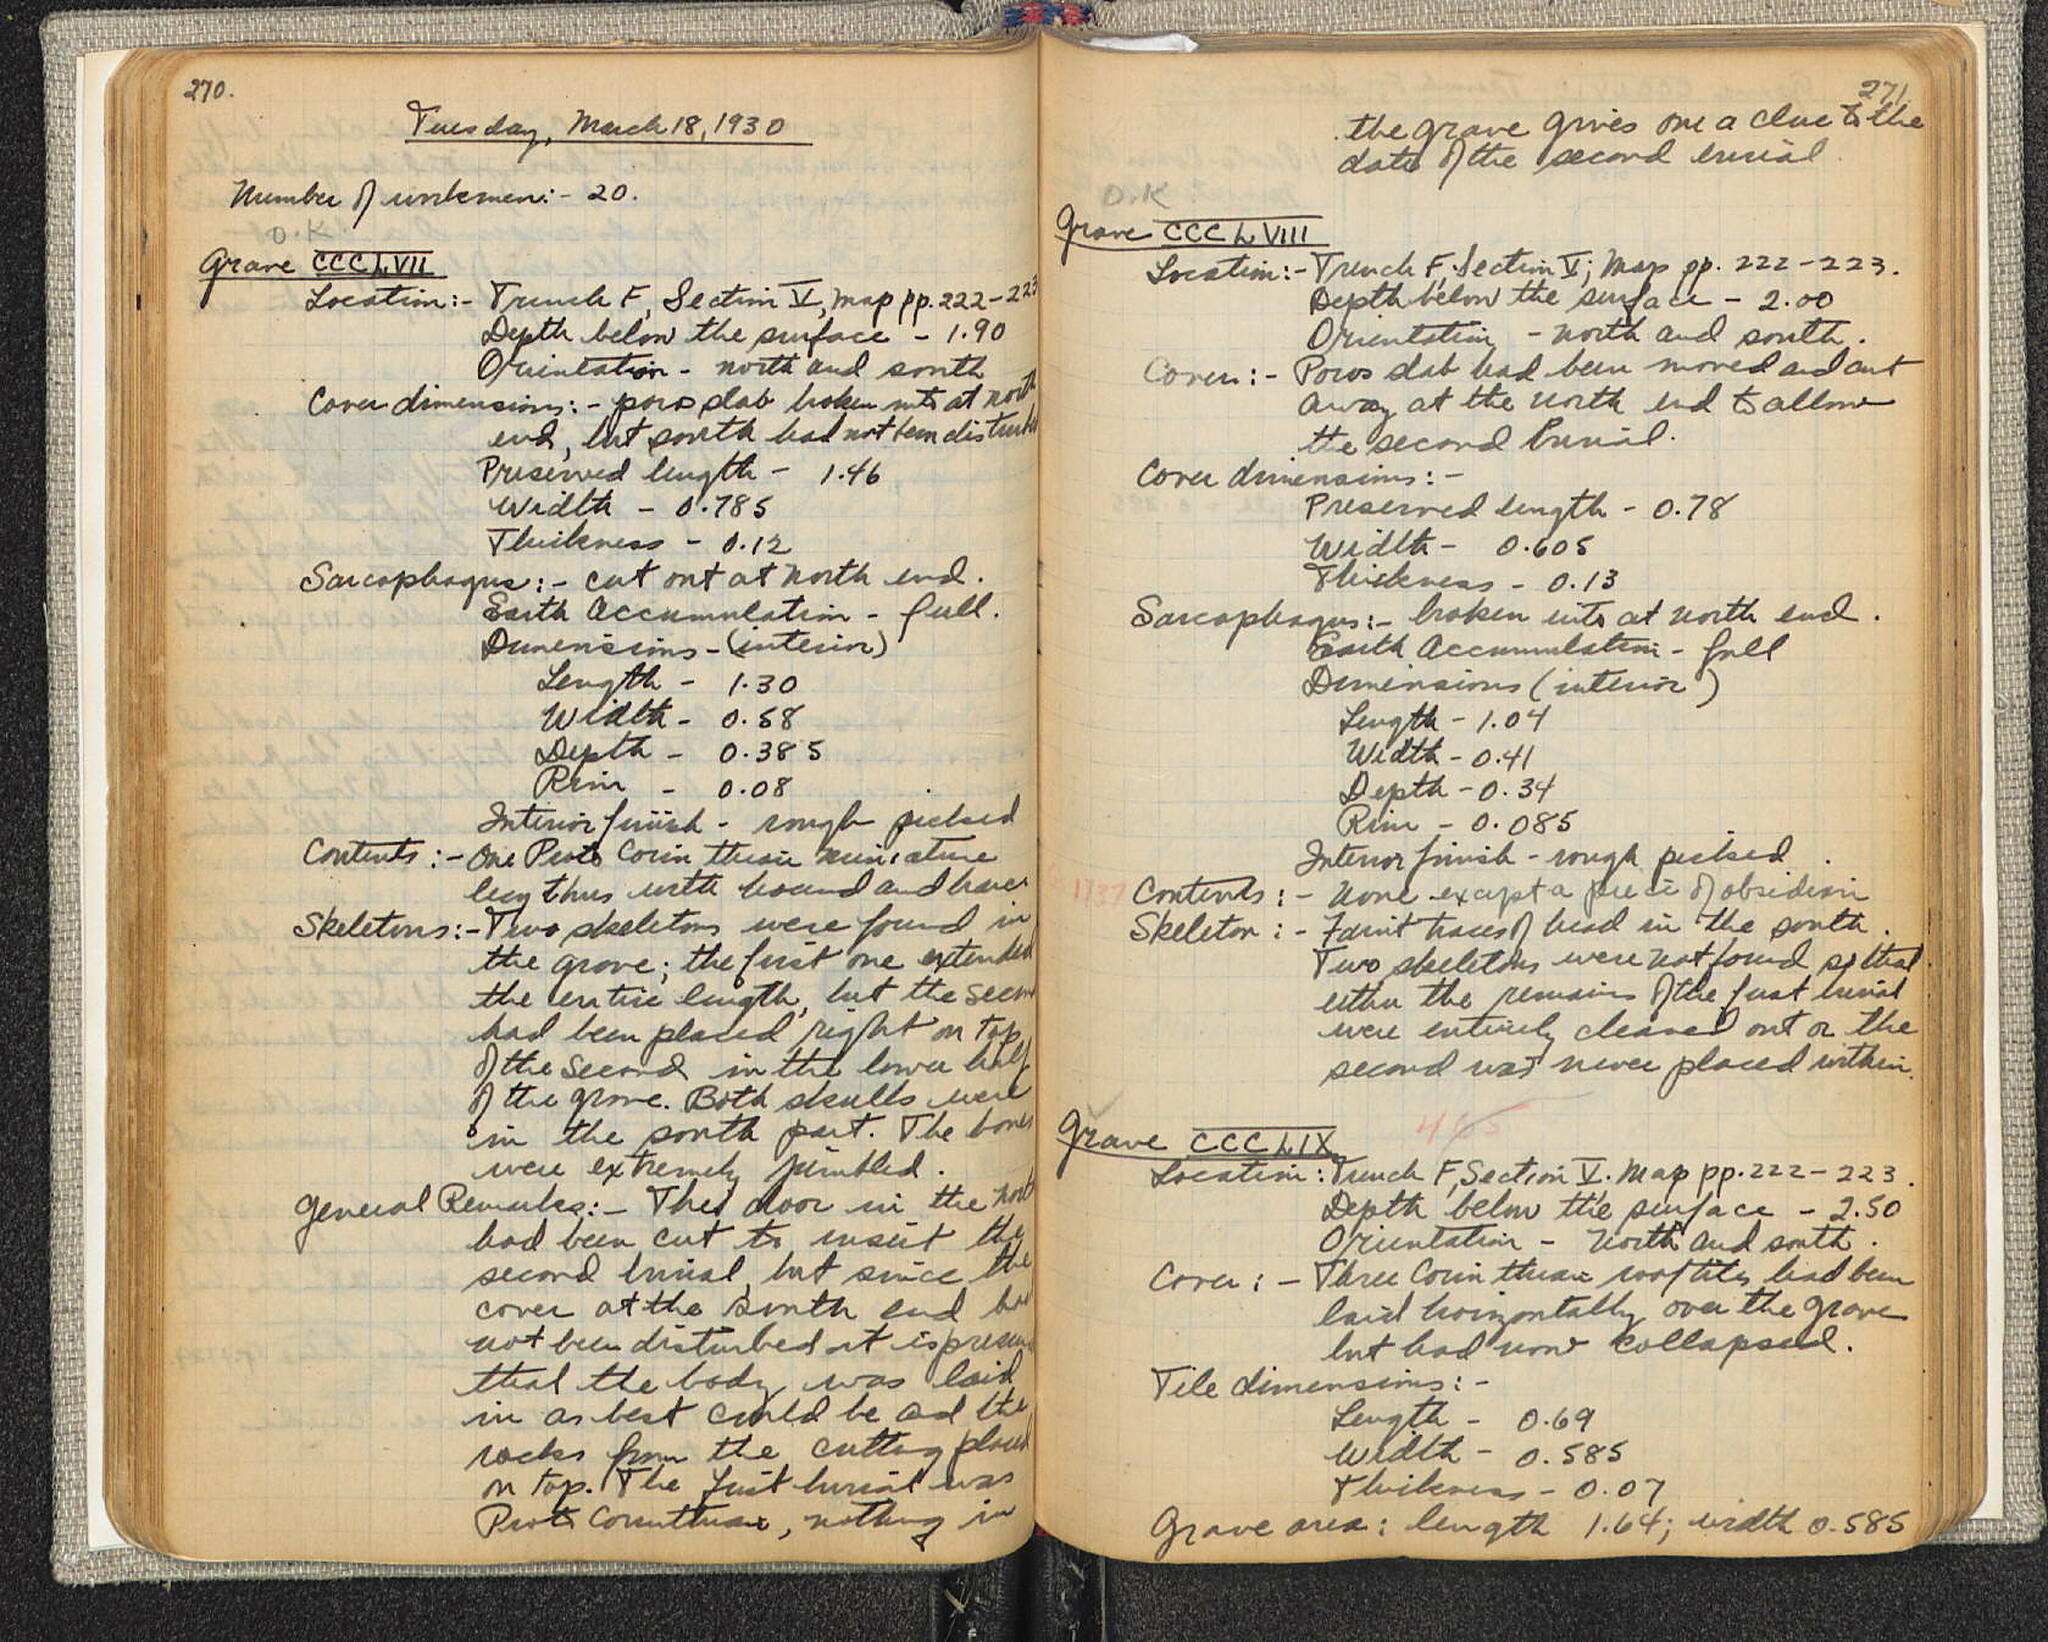 270.
Tuesday, March 18, 1930
Number of workmen:- 20.
O.K.
Grave CCCLVII
Location:- Trench F, Section V, Map pp. 222-223
Depth below the surface - 1.90
Orientation - north and south
Cover dimensions:- poros slab broken into at north
end, but south had not been disturbed
Preserved length - 1.46
Width - 0.785
Thickness - 0.12
Sarcophagus:- cut out at north end.
Earth Accumulation - full.
Dimensions - (interior)
Length - 1.30
Width - 0.58
Depth - 0.385
Rim - 0.08
Interior finish - rough picked
Contents:- One Proto Corinthian miniature
lecythus with hound and hares
Skeletons:- Two skeletons were found in
the grave; the first one extended
the entire length, but the second
had been placed right on top
of the second in the lower half
of the grave. Both skulls were
in the south part. The bones
were extremely jumbled.
General Remarks:- The door in the north
had been cut to insert the
second burial, but since the
cover at the south end had
not been disturbed it is presumed
that the body was laid
in as best could be and the
rocks from the cutting placed
on top. The first burial was
Proto Corinthian, nothing in
271.
the grave gives one a clue to the
date of the second burial.
O.K.
Grave CCCLVIII
Location:- Trench F, Section V; Map pp. 222-223.
Depth below the surface - 2.00
Orientation - north and south.
Cover:- Poros slab had been moved and cut
away at the north end to allow
the second burial.
Cover dimensions:-
Preserved length - 0.78
Width - 0.605
Thickness - 0.13
Sarcophagus:- broken into at north end.
Earth Accumulation - full
Dimensions (interior)
Length - 1.04
Width - 0.41
Depth - 0.34
Rim - 0.085
Interior finish - rough picked.
1737 Contents:- None except a piece of obsidian
Skeleton:- Faint traces of head in the south.
Two skeletons were not found so that
either the remains of the first burial
were entirely cleaned out or the
second was never placed within.
465
Grave CCCLIX
Location: Trench F, Section V. Map pp. 222-223.
Depth below the surface - 2.50
Orientation - North and south.
Cover:- Three Corinthian roof tiles had been
laid horizontally over the grave
but had now collapsed.
Tile dimensions:-
Length - 0.69
Width - 0.585
Thickness - 0.07
Grave area: length 1.64; width 0.585